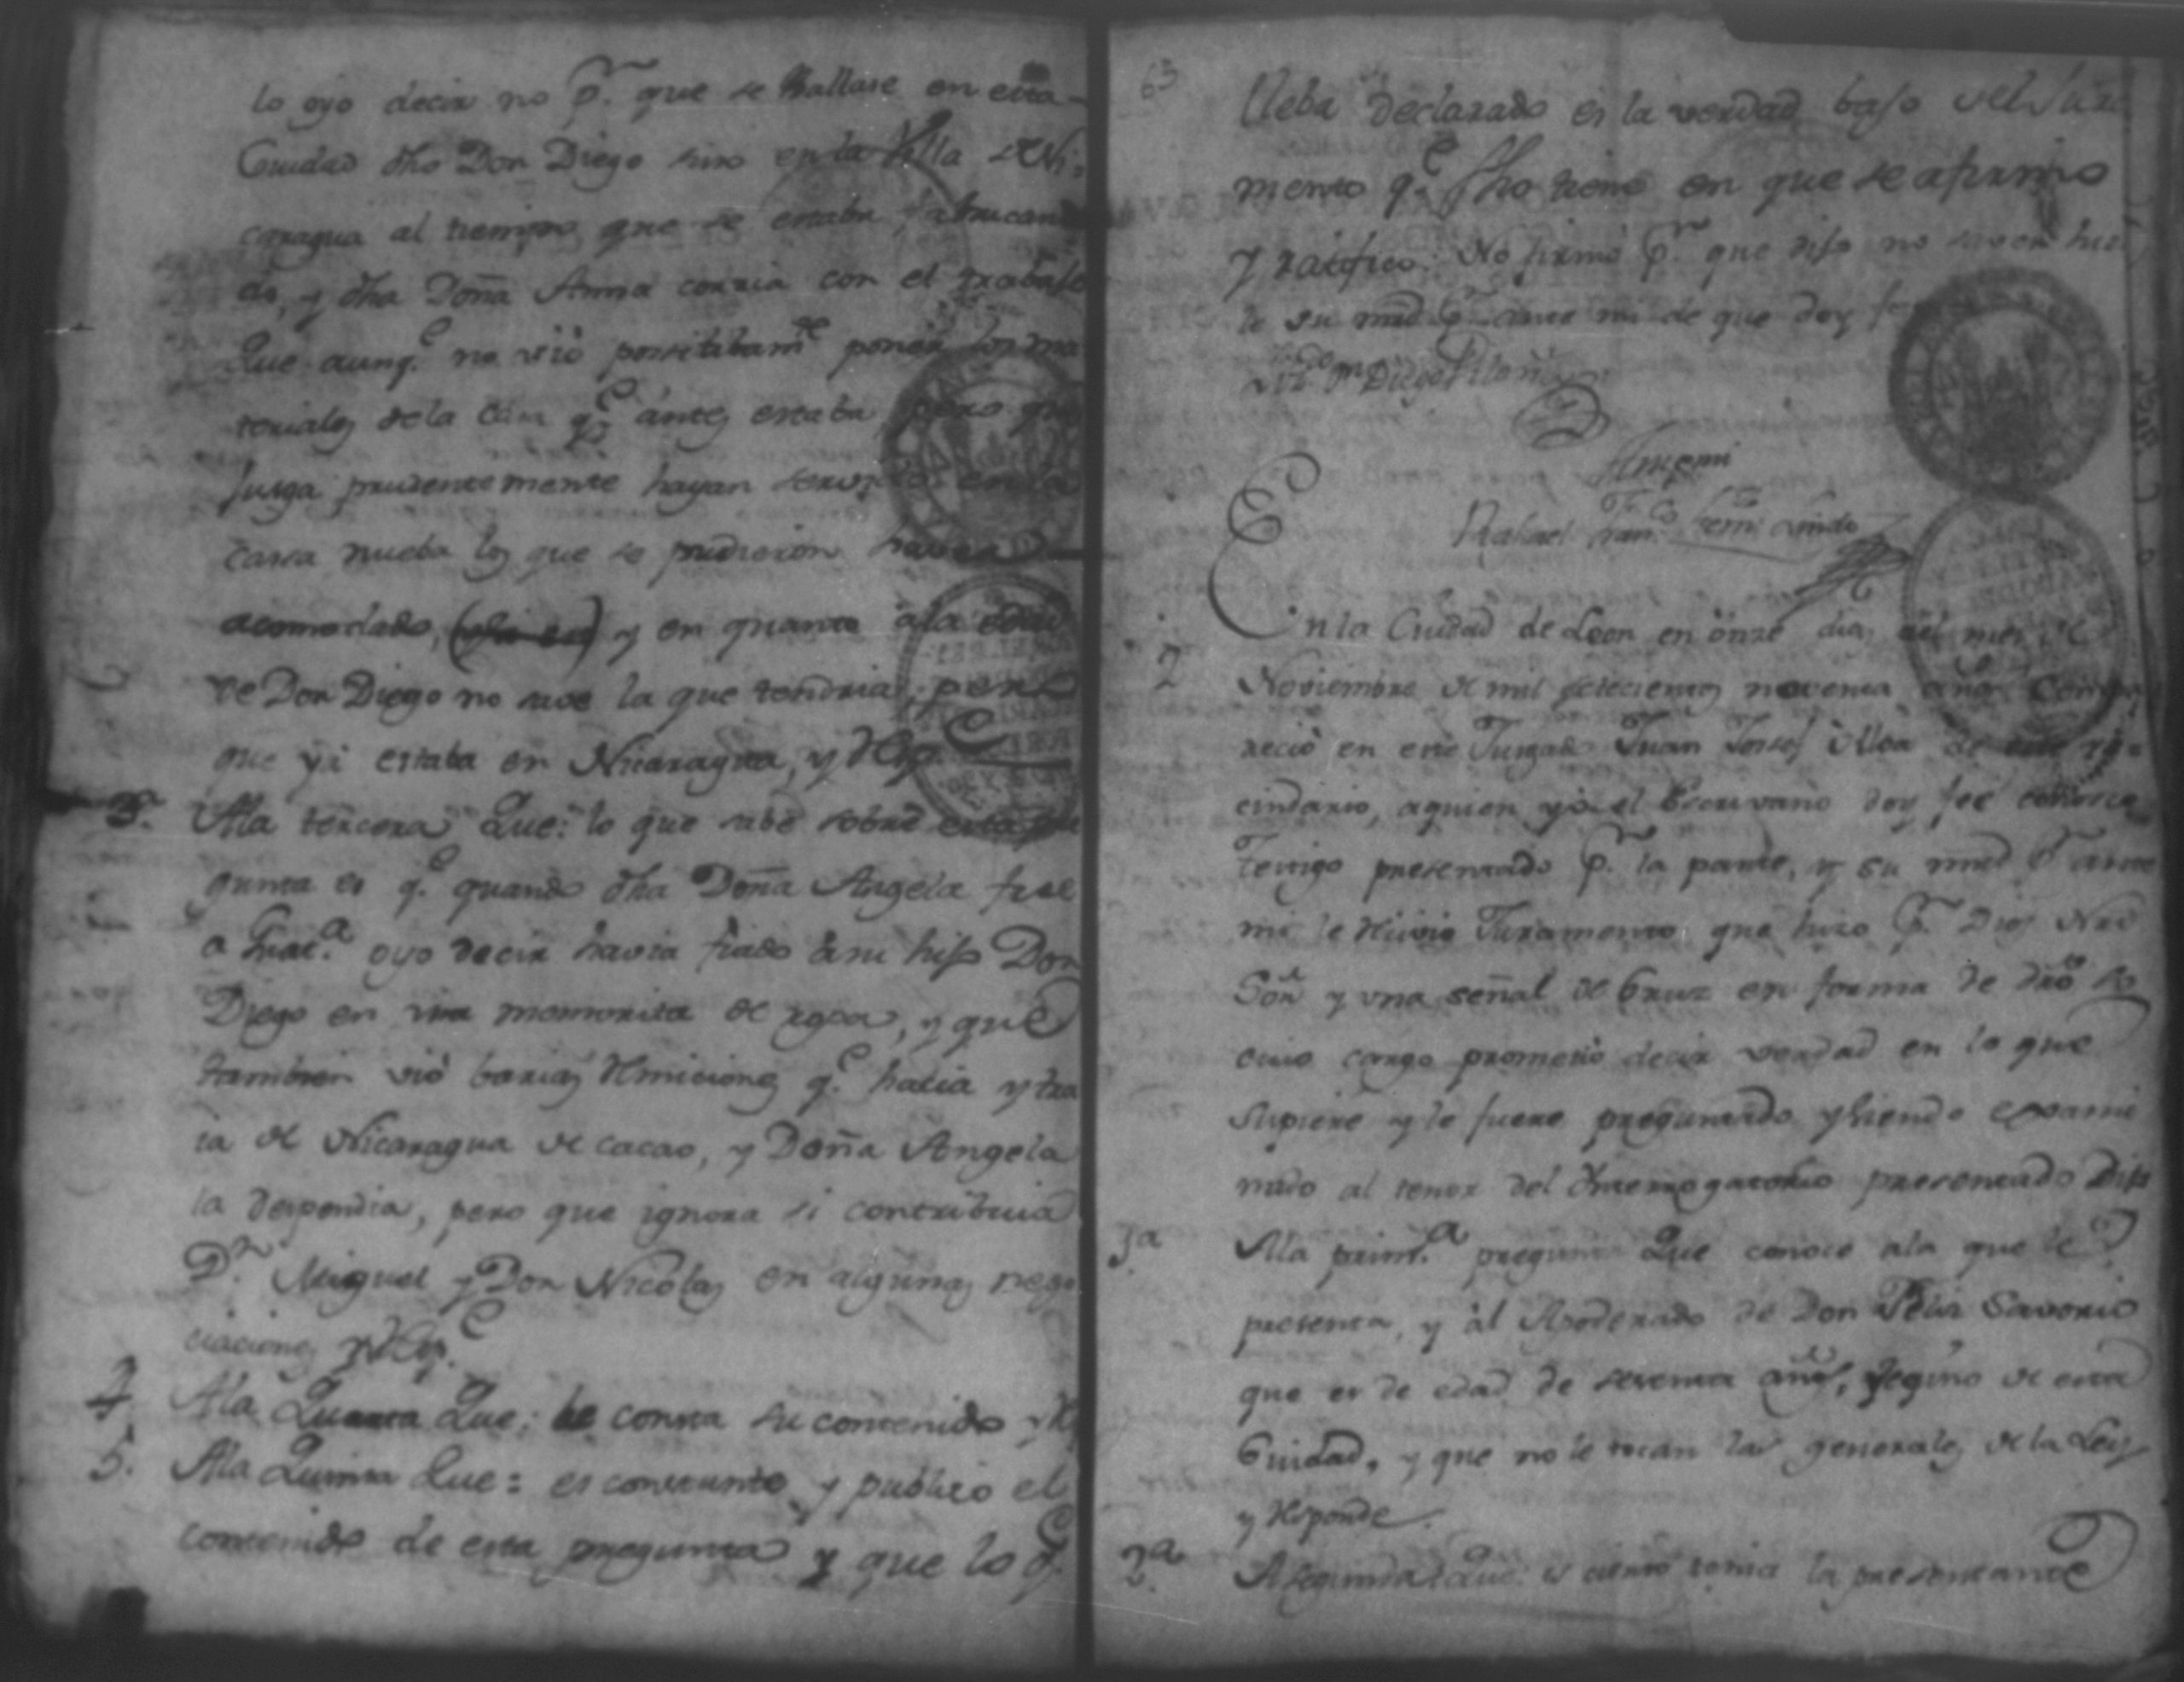 lo oyo decir no p.r que se hallase en esta
Ciudad dho Don Diego sino en la Villa de Ni-
caragua al tiempo que se estaba fabrican
do, y dha Doña Anna corria con el trabajo
Que aunq.e no vió positibam.te poner los ma
teriales de la casa q.e antes estaba, pero que
Jusga prudentemente hayan servido en la
casa nueba los que se pudieron haver
acomodado, y en quanto a la edad
de Don Diego no save la que tendria, pero
que ya estaba en Nicaragua, y Resp.e
3. A la tercera Que: lo que sabe sobre esta pre
gunta es q.e quando dha Doña Angela fue
a Guat.a oyo decir havia fiado a su hijo Don
Diego en una memorita de ropa, y que
tambien vió barias Remiciones q.e hacia y tra
ia de Nicaragua de cacao, y Doña Angela
la despendia, pero que ignora si contribuia
D.n Miguel y Don Nicolas en algunas nego
ciaciones y Resp.e
4. A la Quarta Que: le consta su contenido y R
5. A la Quinta Que: es constante y publico el
contenido de esta pregunta y que lo q.e
63
lleba declarado es la verdad bajo del Jura
mento q.e fho tiene en que se afirmó
y ratificó: No firmó p.r que dijo no saver, hizo
lo su md p.r ante mi de que doy fee
Diego
Antemi
Rafael Fran.co
2
En la Ciudad de Leon en onze dias del mes de
Noviembre de mil setecientos noventa años Compa
reció en este Juzgado Juan Josef Ulloa de este ve
cindario, a quien yo el Escrivano doy fee conosco
Testigo presentado p.r la parte, y su md p.r ante
mi le recivio Juramento que hizo p.r Dios Nro
Sór y una señal de Cruz en forma de dro so
cuio cargo prometió decir verdad en lo que
supiere y le fuere preguntado y siendo exami
nado al tenor del Interrogatorio presentado Dijo
1a A la prim.a pregunta Que conoce a la que le
presenta, y al Apoderado de Don Felix Savorio
que es de edad de setenta años, vegino de esta
Ciudad, y que no le tocan las generales de la Ley
y Responde.
2a A segunda Que: es cierto tenia la presentante